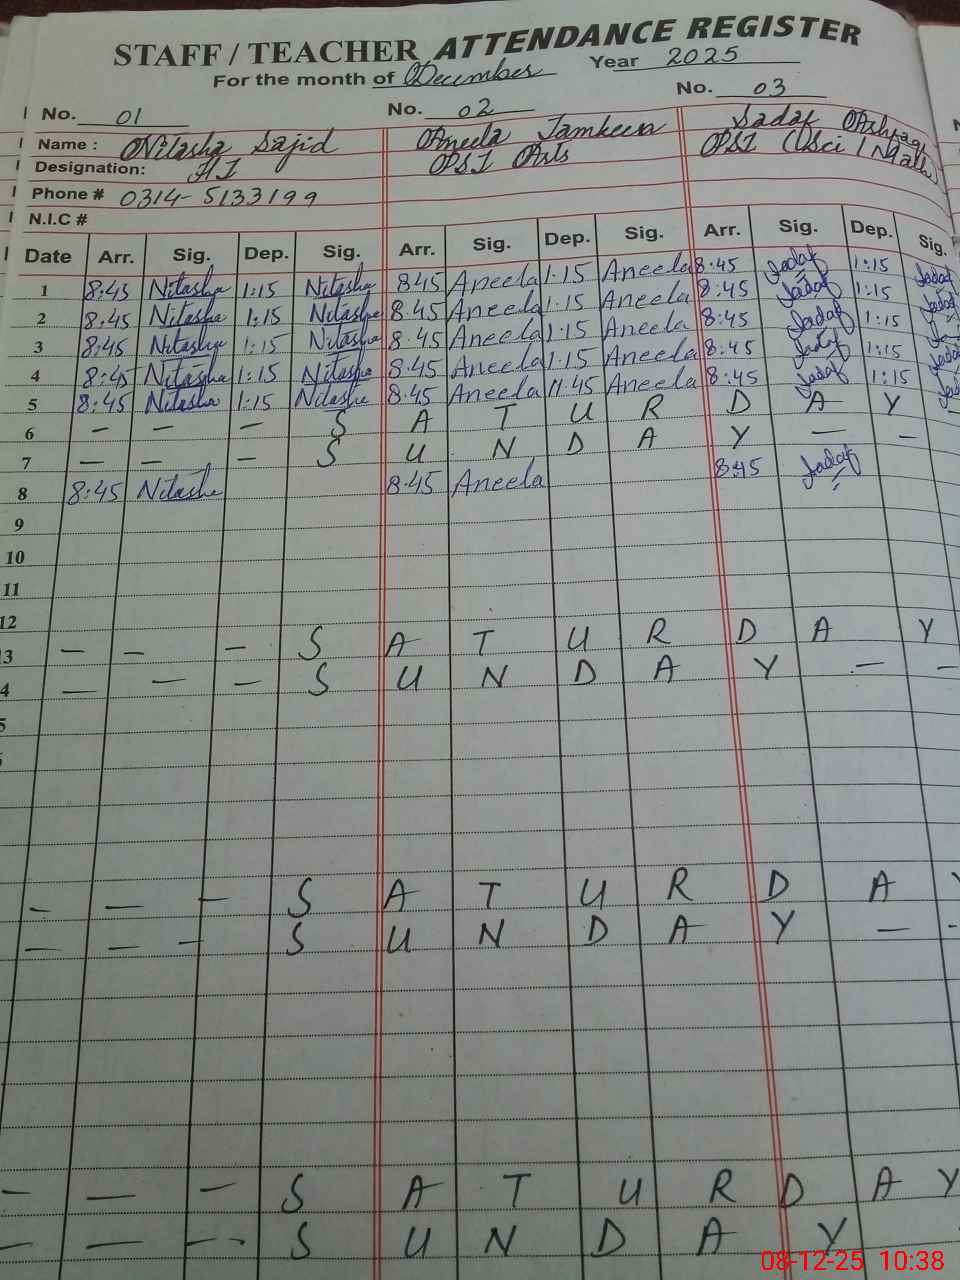 STAFF / TEACHER ATTENDANCE REGISTER
For the month of December Year 2025
No. 01 No. 02 No. 03
Name : Nitasha Sajid Aneela Tamkeen Sadaf Ashfaq
Designation: PST Arts PST (Sci / Math)
Phone # 0314-5133199
N.I.C #
Date Arr. Sig. Dep. Sig. Arr. Sig. Dep. Sig. Arr. Sig. Dep. Sig.
1 8:45 Nitasha 1:15 Nitasha 8:45 Aneela 1:15 Aneela 8:45 Sadaf 1:15 Sadaf
2 8:45 Nitasha 1:15 Nitasha 8:45 Aneela 1:15 Aneela 8:45 Sadaf 1:15 Sadaf
3 8:45 Nitasha 1:15 Nitasha 8:45 Aneela 1:15 Aneela 8:45 Sadaf 1:15
4 8:45 Nitasha 1:15 Nitasha 8:45 Aneela 1:15 Aneela 8:45 Sadaf 1:15
5 8:45 Nitasha 1:15 Nitasha 8:45 Aneela 11:45 Aneela 8:45 Sadaf 1:15
6 — — — S A T U R D A Y
7 — — — S U N D A Y — —
8 8:45 Nitasha 8:45 Aneela 8:45 Sadaf
9
10
11
12
3 — — — S A T U R D A Y
4 — — — S U N D A Y — —
5
— — — S A T U R D A Y
— — — S U N D A Y — -
— — — S A T U R D A Y
— — -- S U N D A Y
08-12-25 10:38